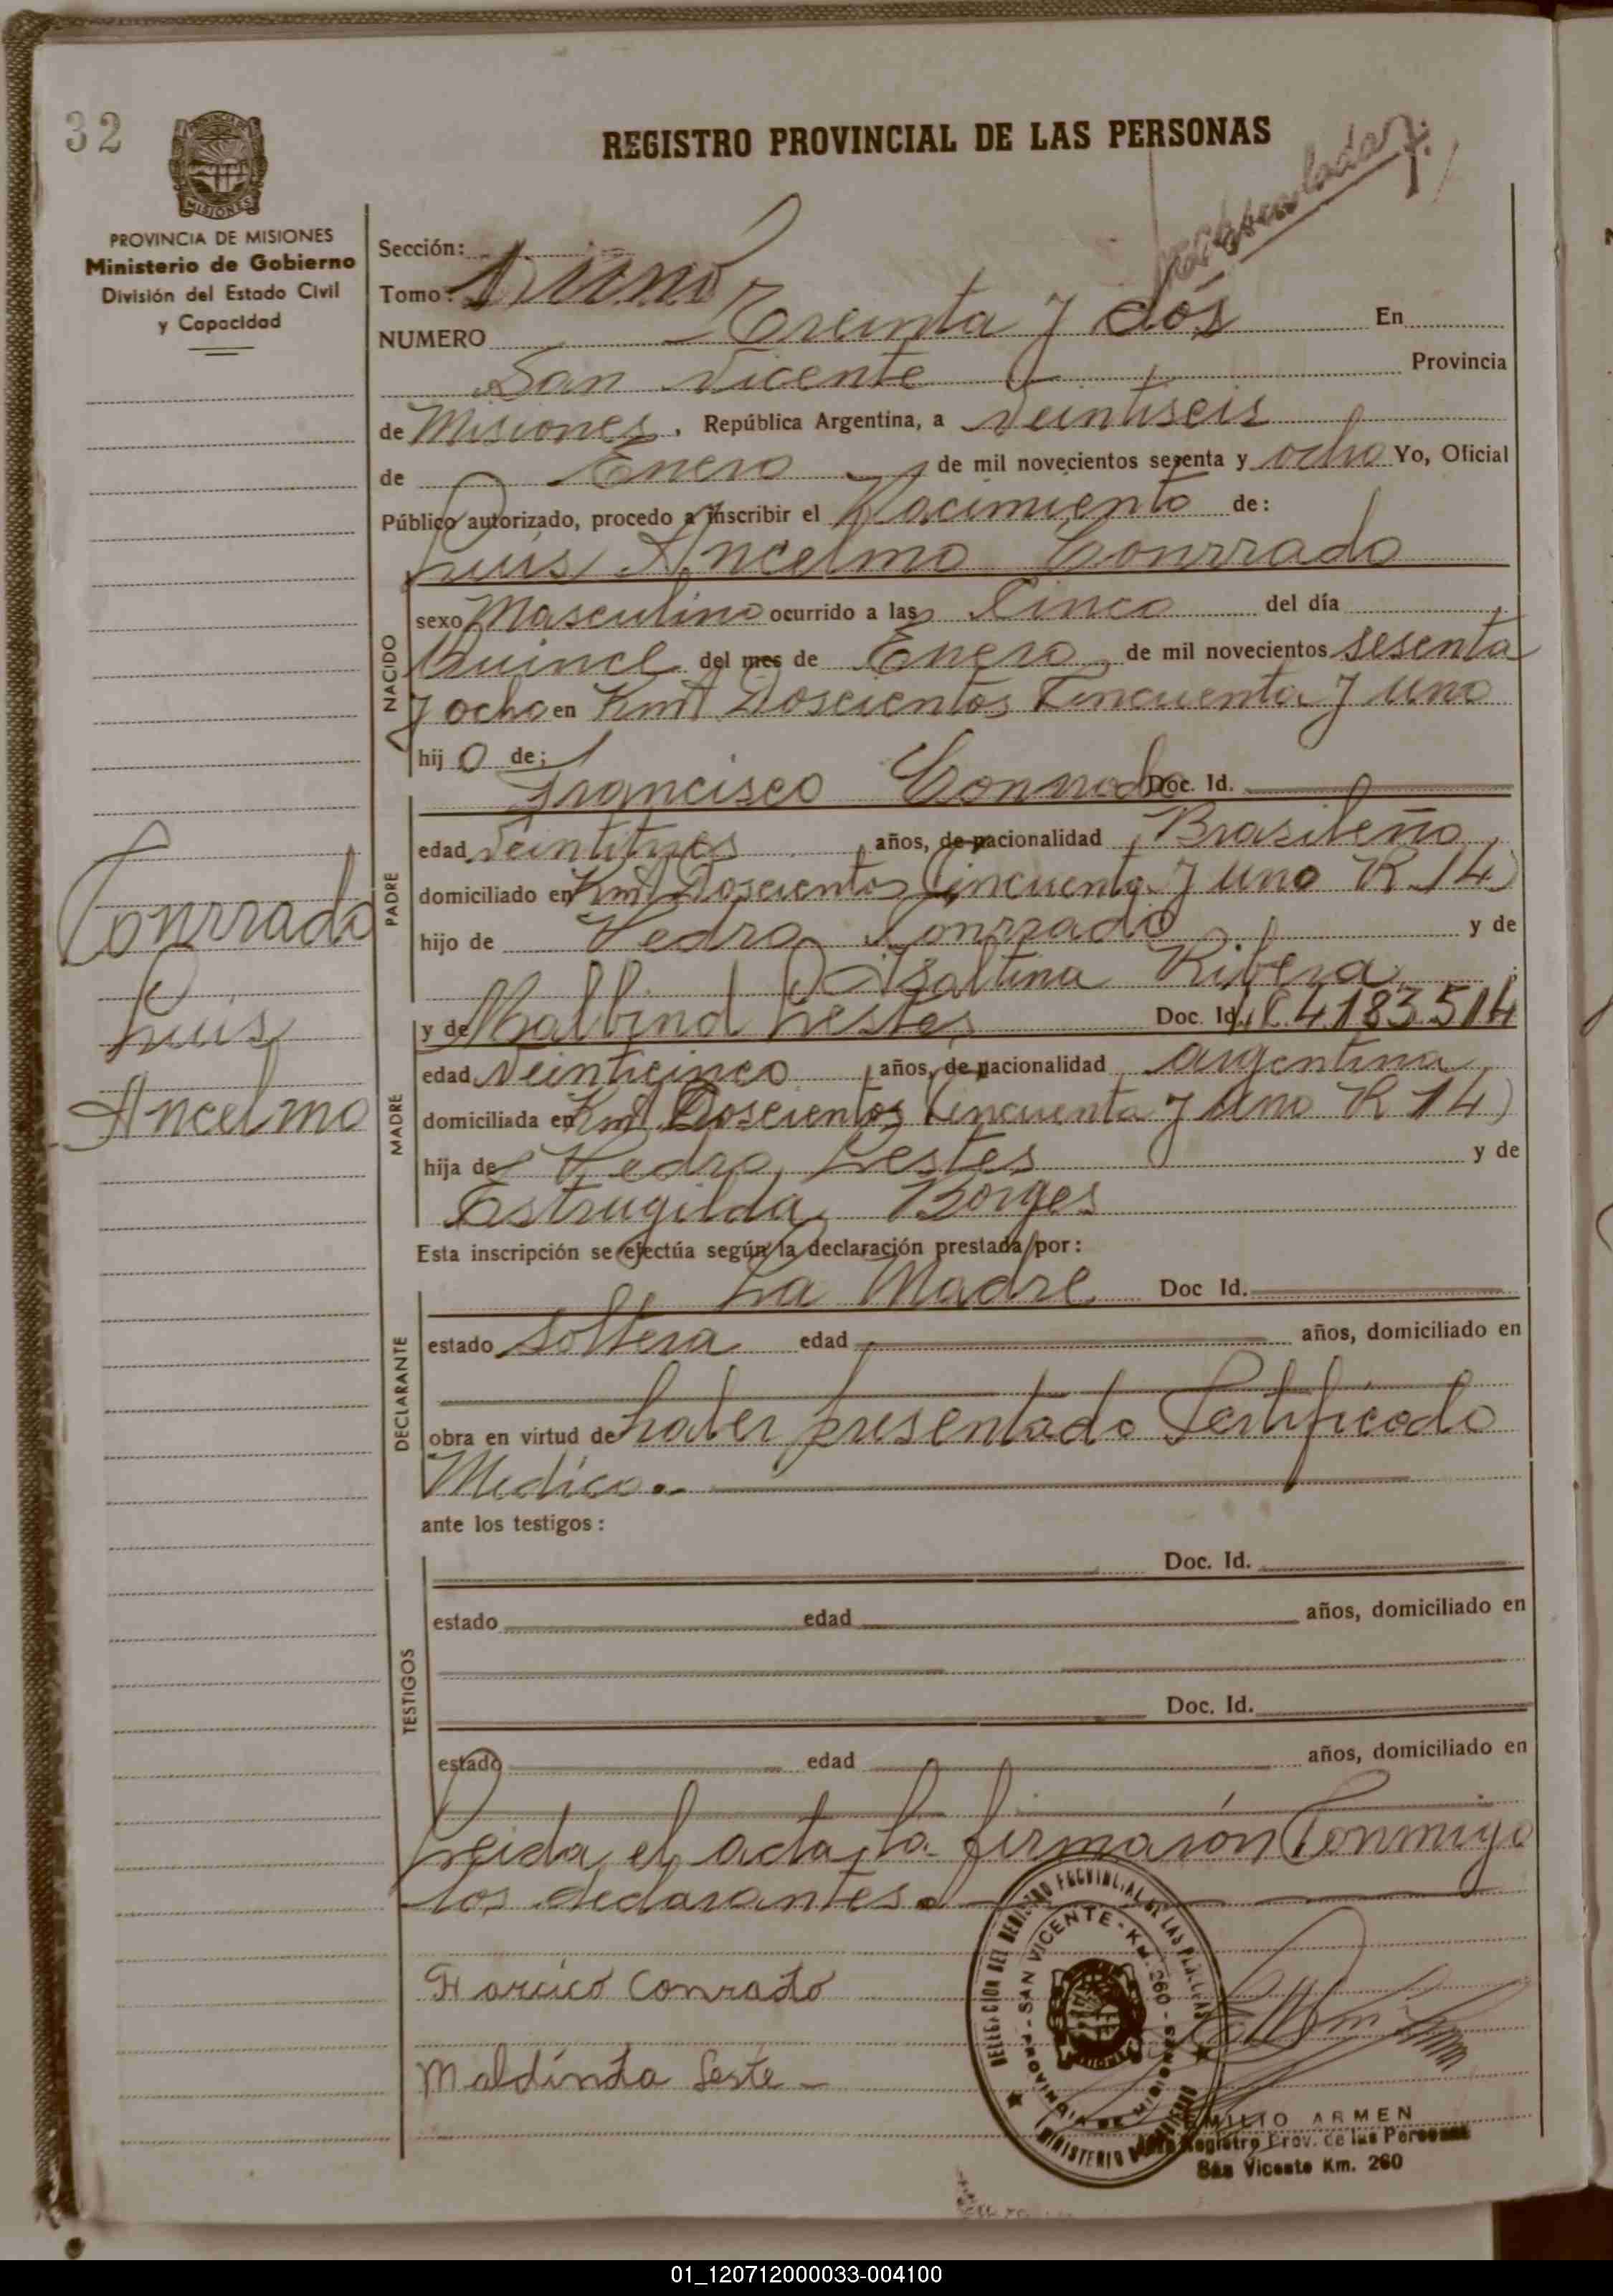 32
REGISTRO PROVINCIAL DE LAS PERSONAS
MISIONES
PROVINCIA DE MISIONES
Ministerio de Gobierno
División del Estado Civil
y Capacidad
Sección:
Tomo: uno
NUMERO Treinta y dós En
San Vicente Provincia
de Misiones, República Argentina, a veintiseis
de Enero de mil novecientos sesenta y ocho Yo, Oficial
Público autorizado, procedo a inscribir el Nacimiento de:
Luis Ancelmo Conrrado
NACIDO
sexo Masculino ocurrido a las Cinco del día
Quince del mes de Enero de mil novecientos sesenta
y ocho en Kmt Doscientos Cincuenta y uno
hij o de:
Francisco Conrrado Doc. Id.
PADRE
edad veintitres años, de nacionalidad Brasileño
domiciliado en Kmt Doscientos Cincuenta y uno R 14)
hijo de Pedro Conrrado y de
Ribera
Conrrado
Luis
Ancelmo
MADRE
y de Lestes Doc. Id. 4183514
edad veinticinco años, de nacionalidad argentina
domiciliada en Kmt Doscientos Cincuenta y uno R 14)
hija de Pedro Lestes y de
Estrugilda Borges
Esta inscripción se efectúa según la declaración prestada por:
La Madre Doc Id.
DECLARANTE
estado soltera edad años, domiciliado en
obra en virtud de haber presentado Certificado
Medico.
ante los testigos:
TESTIGOS
Doc. Id.
estado edad años, domiciliado en
Doc. Id.
estado edad años, domiciliado en
Leida el acta, la firmarón Conmigo
los declarantes.
Conrado
Maldinda Leste
DELEGACION DEL REGISTRO PROVINCIAL DE LAS PERSONAS
SAN VICENTE - KM. 260 - PROVINCIA DE MISIONES
MINISTERIO DE GOBIERNO
EMILIO ARMEN
Registro Prov. de las Personas
San Vicente Km. 260
01_120712000033-004100